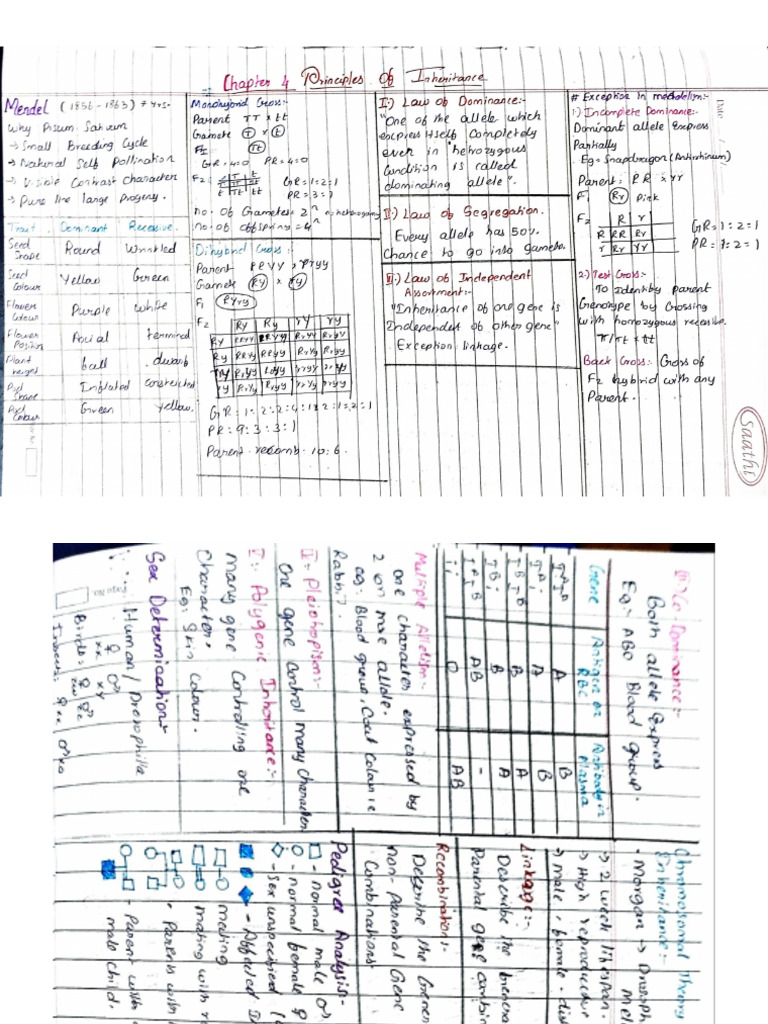 Chapter 4 Principles Of Inheritance
Mendel (1856-1863) 7 yrs.
Why Pisum Sativum
→ Small Breeding Cycle
→ Natural Self Pollination
→ Visible Contrast Character
→ Pure line large Progeny.
Trait Dominant Recessive
Seed Shape Round Wrinkled
Seed Colour Yellow Green
Flower Colour Purple White
Flower Position Axial Terminal
Plant height tall dwarf
Pod Shape Inflated constricted
Pod Colour Green yellow.
Monohybrid Cross:-
Parent TT x tt
Gamete T x t
F1 Tt
GR = 4:0 PR = 4:0
F2: T t
GR = 1:2:1
PR = 3:1
no. of Gametes = 2ⁿ
no. of offspring = 4ⁿ
Dihybrid Cross:-
Parent RRYY x rryy
Gamete RY x ry
F1 RrYy
F2
RY Ry rY ry
GR: 1:2:2:4:1:2:1:2:1
PR: 9:3:3:1
Parent recomb. 10:6.
I.) Law of Dominance:-
"One of the allele which
express itself completely
even in hetrozygous
Condition is called
dominating allele".
II:-) Law of Segregation.
Every allele has 50%.
Chance to go into gamete.
II.) Law of Independent
Assortment:-
"Inheritance of one gene is
Independent of other gene"
Exception linkage.
# Exception in mendelism:-
1.) Incomplete Dominance:-
Dominant allele Express
Partially
Eg = Snapdragon (Antirrhinum)
Parent: RR x rr
F1 Rr Pink
F2 R r
R RR Rr
r Rr rr
GR = 1:2:1
PR = 1:2:1
2.) Test Cross:-
To Identify parent
Genotype by Crossing
with homozygous recessive.
TT/Tt x tt
Back Cross:- Cross of
F2 hybrid with any
Parent.
Date
Saathi
Co-Dominance:-
Both allele Express
Eg:- ABO Blood group.
Gene Antigen on RBC Antibody in Plasma
A B
A B
B A
B A
AB -
ii O AB
Multiple Allelism:-
one character expressed by
2 or more allele.
eg:- Blood group, Coat Colour in
Rabbit.
I:- Pleiotropism:-
One gene control many character
I:- Polygenic Inheritance:-
many gene Controlling one
Character.
Eg: Skin colour.
Sex Determination:-
Human/Drosophilla
♀ ♂
xx xy
Birds:- ♀ ♂
Insects: ♀ xx ♂ xo
Chromosomal Theory
Inheritance:-
• Morgan →
→ 2 week lifespan.
→ High reproductive
→ male, female
Linkage:-
Describe the
Parental gene
Recombination:-
Describe the
non-Parental Gene
Combinations
Pedigree Analysis:-
- normal male ♂
- normal female ♀
- Sex unspecified
- Affected
- mating
- mating with
- Parents with
- Parent with
male child.